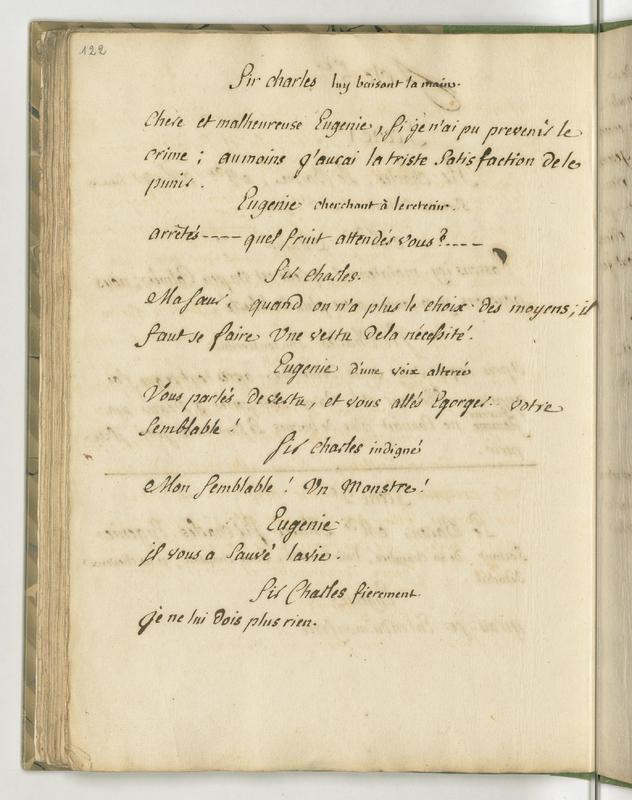 122
Sir charles luy baisant la main.
Chere et malheureuse Eugenie, si je n'ai pu prevenir le
crime ; aumoins j'aurai la triste Satisfaction de le
punir.
Eugenie cherchant à le retenir.
arrêtés---- quel fruit attendés vous?----
Sir Charles.
Ma Sœur, quand on n'a plus le choix des moyens; il
faut se faire Une vertu de la nécessité.
Eugenie d'une voix alterée
Vous parlés de vertu, et vous allés Egorger votre
Semblable!
Sir Charles indigné
Mon Semblable! Un Monstre!
Eugenie
il vous a Sauvé la vie.
Sir Charles fierement
je ne lui dois plus rien.